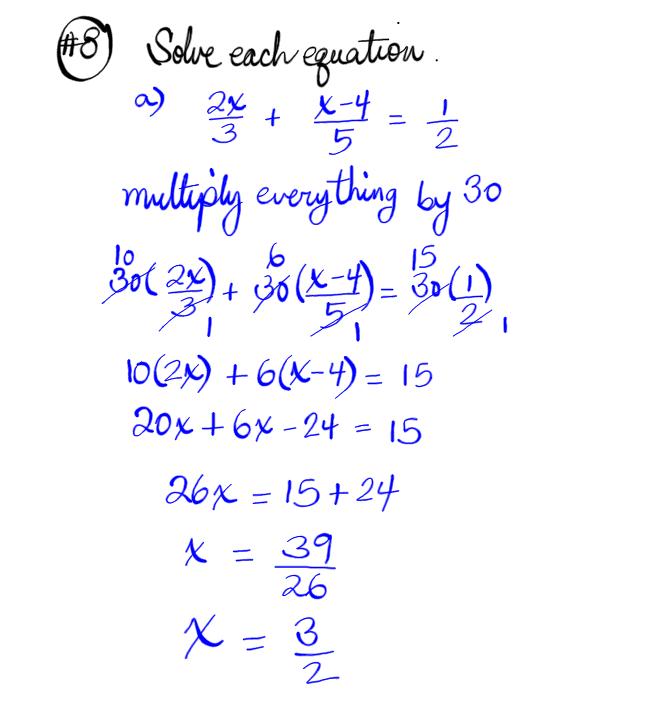 #8 Solve each equation.
a) 2x/3 + x-4/5 = 1/2
multiply everything by 30
10 6 15
30(2x/3) + 30(x-4/5) = 30(1/2)
1 1 1
10(2x) + 6(x-4) = 15
20x + 6x - 24 = 15
26x = 15 + 24
x = 39/26
x = 3/2